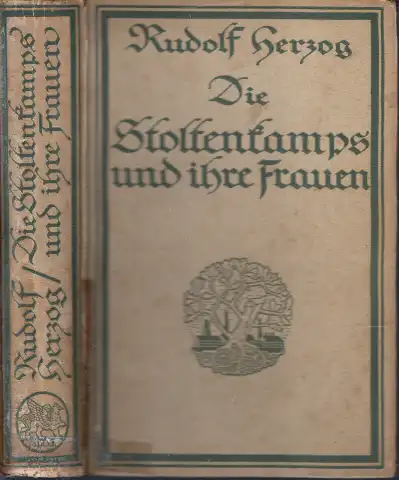 Rudolf Herzog
Die
Stoltenkamps
und ihre Frauen
Rudolf / Die Stoltenkamps
Herzog / und ihre Frauen